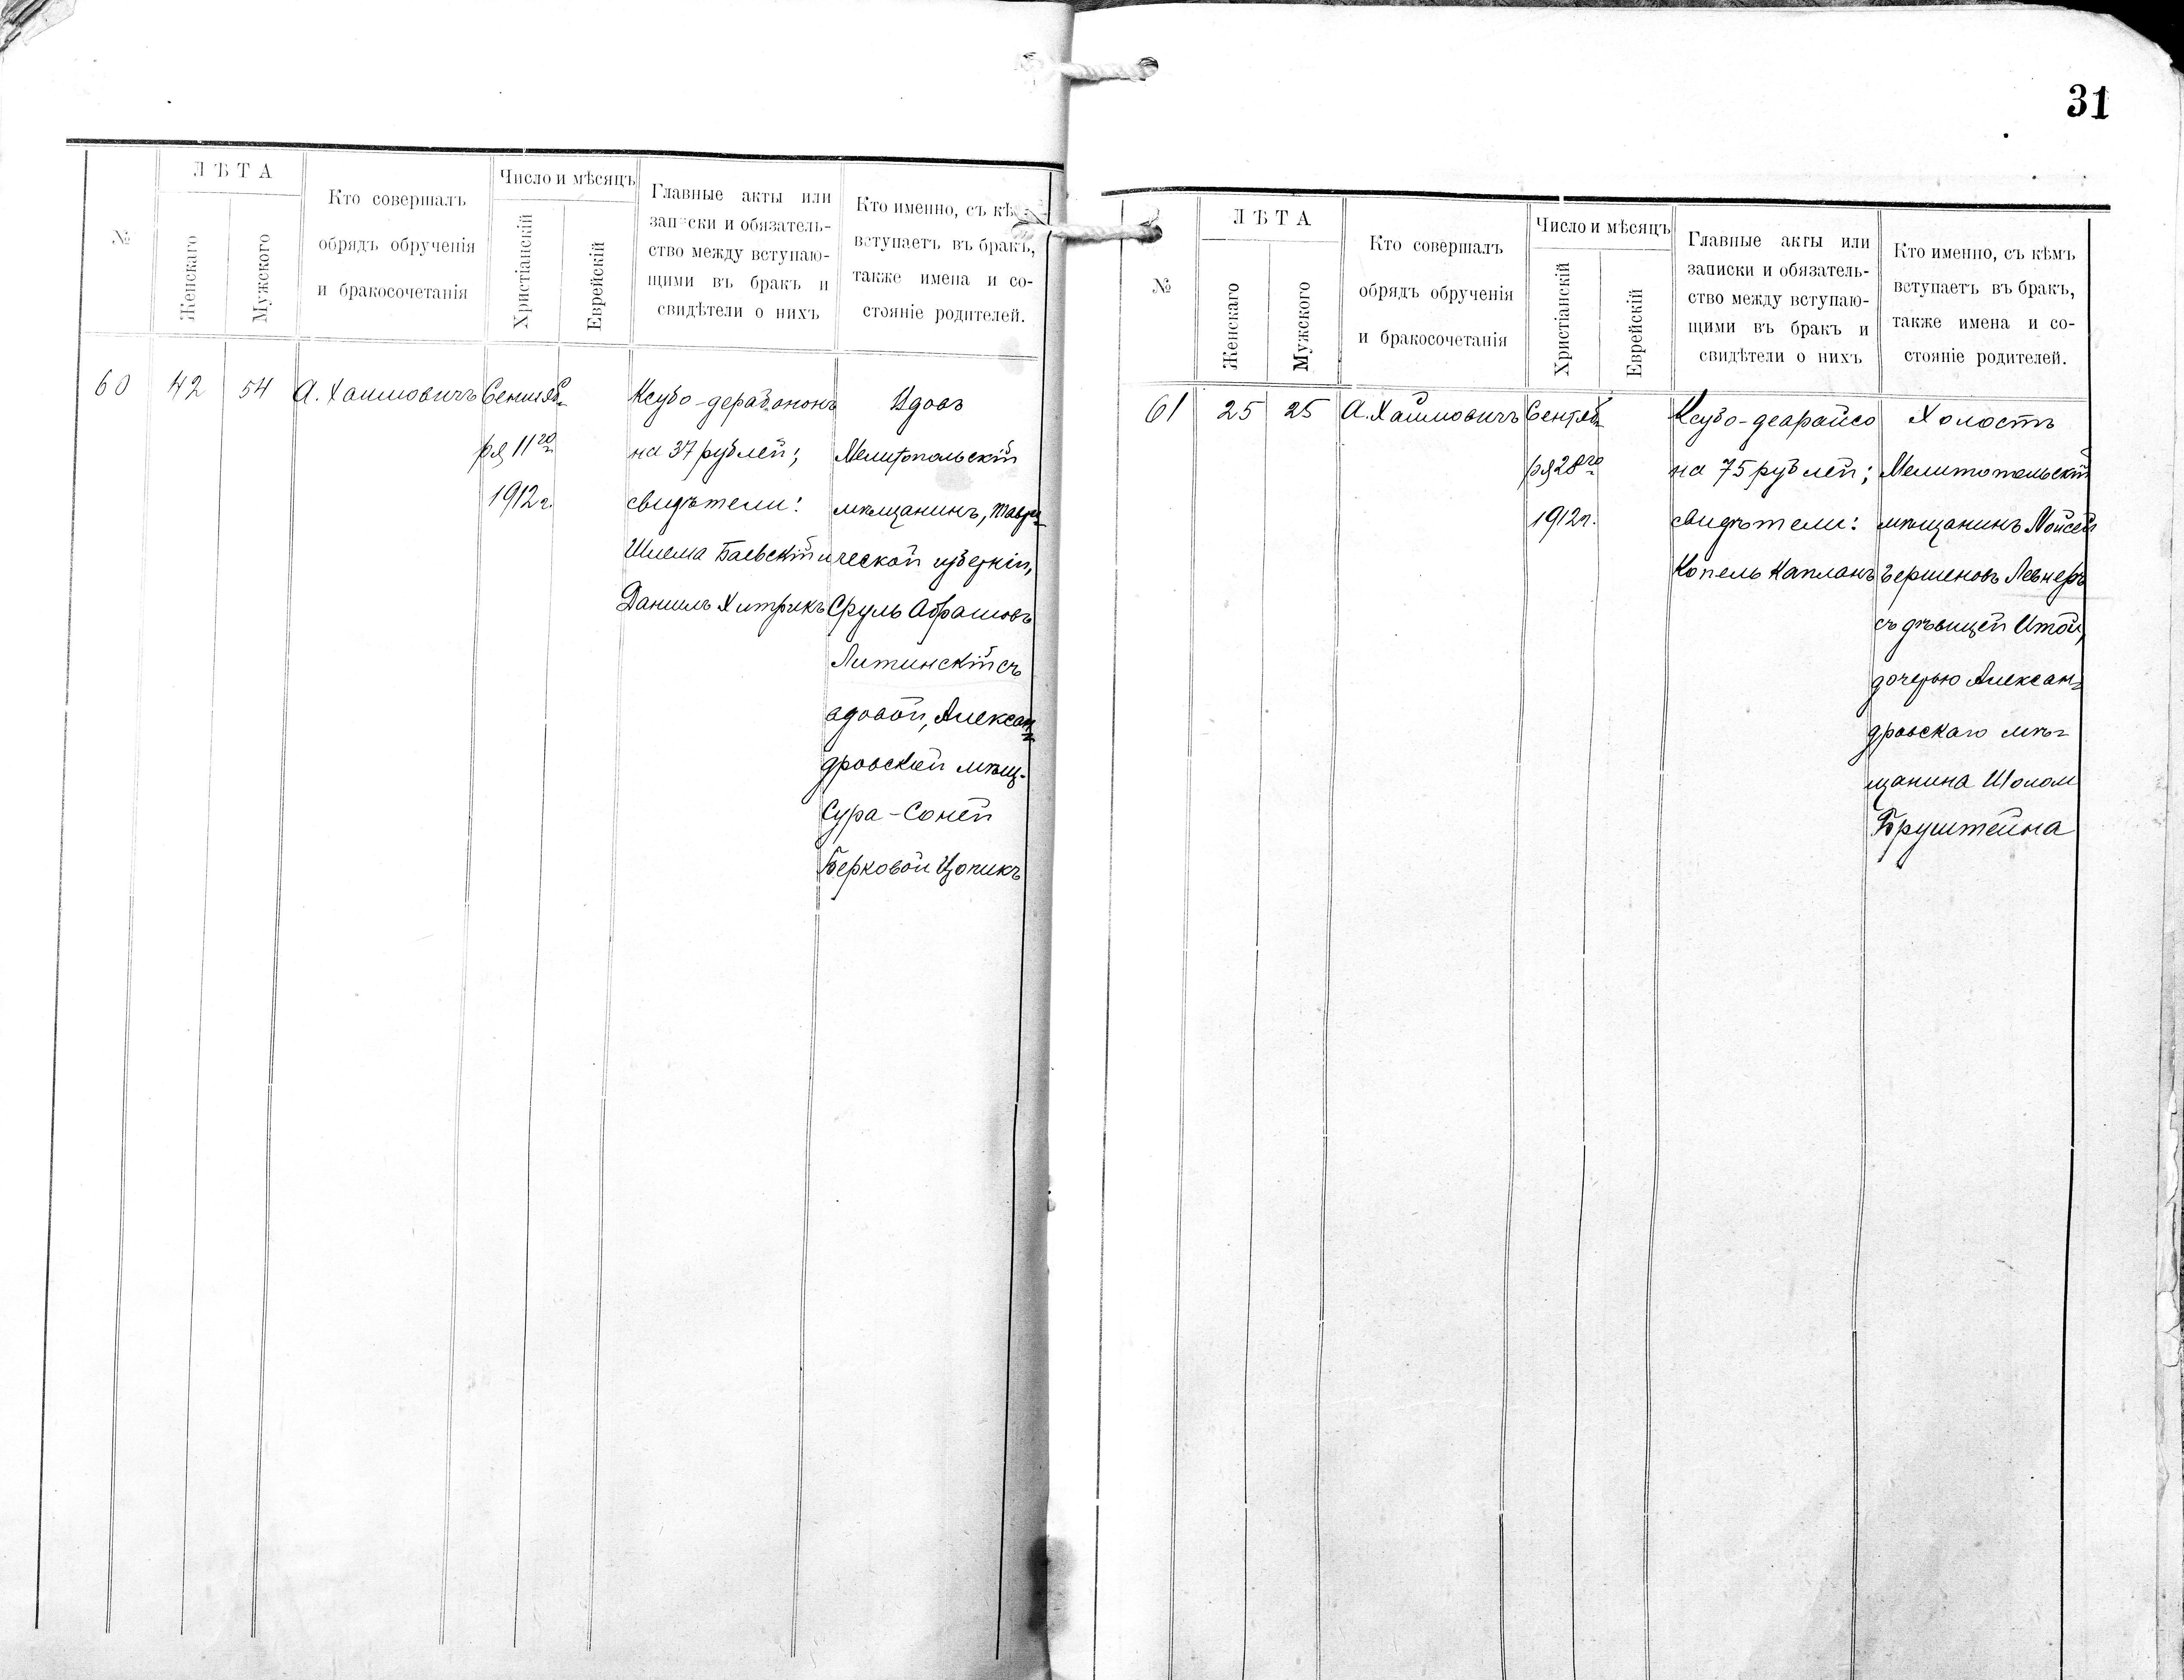 №
ЛѢТА
Женскаго
Мужского
Кто совершалъ
обрядъ обрученія
и бракосочетанія
Число и мѣсяцъ
Христіанскій
Еврейскій
Главные акты или
записки и обязатель-
ство между вступаю-
щими въ бракъ и
свидѣтели о нихъ
Кто именно, съ
вступаетъ въ бракъ,
также имена и со-
стояніе родителей.
60
42
54
А. Хаимовичъ
Сентяб-
ря 11го
1912 г.
Ксубо-дерабононъ
на 37 рублей;
свидѣтели:
Шлема Баевскій и
Даніилъ Хитрикъ
Вдовъ
Мелитопольскій
мѣщанинъ, Таври-
ческой губерніи,
Сруль Абрамовъ
Литинскій съ
вдовой, Алексан-
дровской мѣщ.
Сура-Соней
Берковой Цопикъ
31
№
ЛѢТА
Женскаго
Мужского
Кто совершалъ
обрядъ обрученія
и бракосочетанія
Число и мѣсяцъ
Христіанскій
Еврейскій
Главные акты или
записки и обязатель-
ство между вступаю-
щими въ бракъ и
свидѣтели о нихъ
Кто именно, съ кѣмъ
вступаетъ въ бракъ,
также имена и со-
стояніе родителей.
61
25
25
А. Хаимовичъ
Сентяб-
ря 28го
1912 г.
Ксубо-деарайсо
на 75 рублей;
свидѣтели:
Копель Капланъ
Холостъ
Мелитопольскій
мѣщанинъ Мойсей
Гершеновъ Левнеръ
съ дѣвицей Итой,
дочерью Алексан-
дровскаго мѣ-
щанина Шолом
Бруштейна